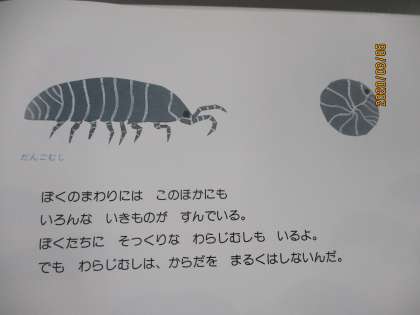 だんごむし
ぼくのまわりには　このほかにも
いろんな　いきものが　すんでいる。
ぼくたちに　そっくりな　わらじむしも　いるよ。
でも　わらじむしは、からだを　まるくはしないんだ。